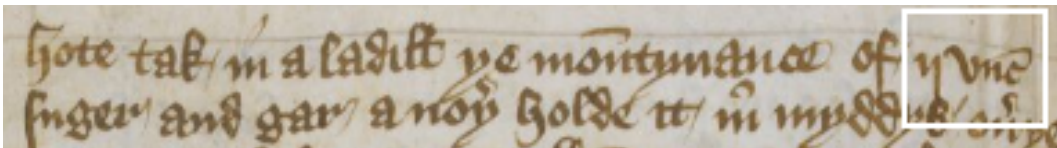 hote tak in a ladill ye mōntynance of ij vnc̄
suger and gar a noyr̉ holde it in̉ myddys